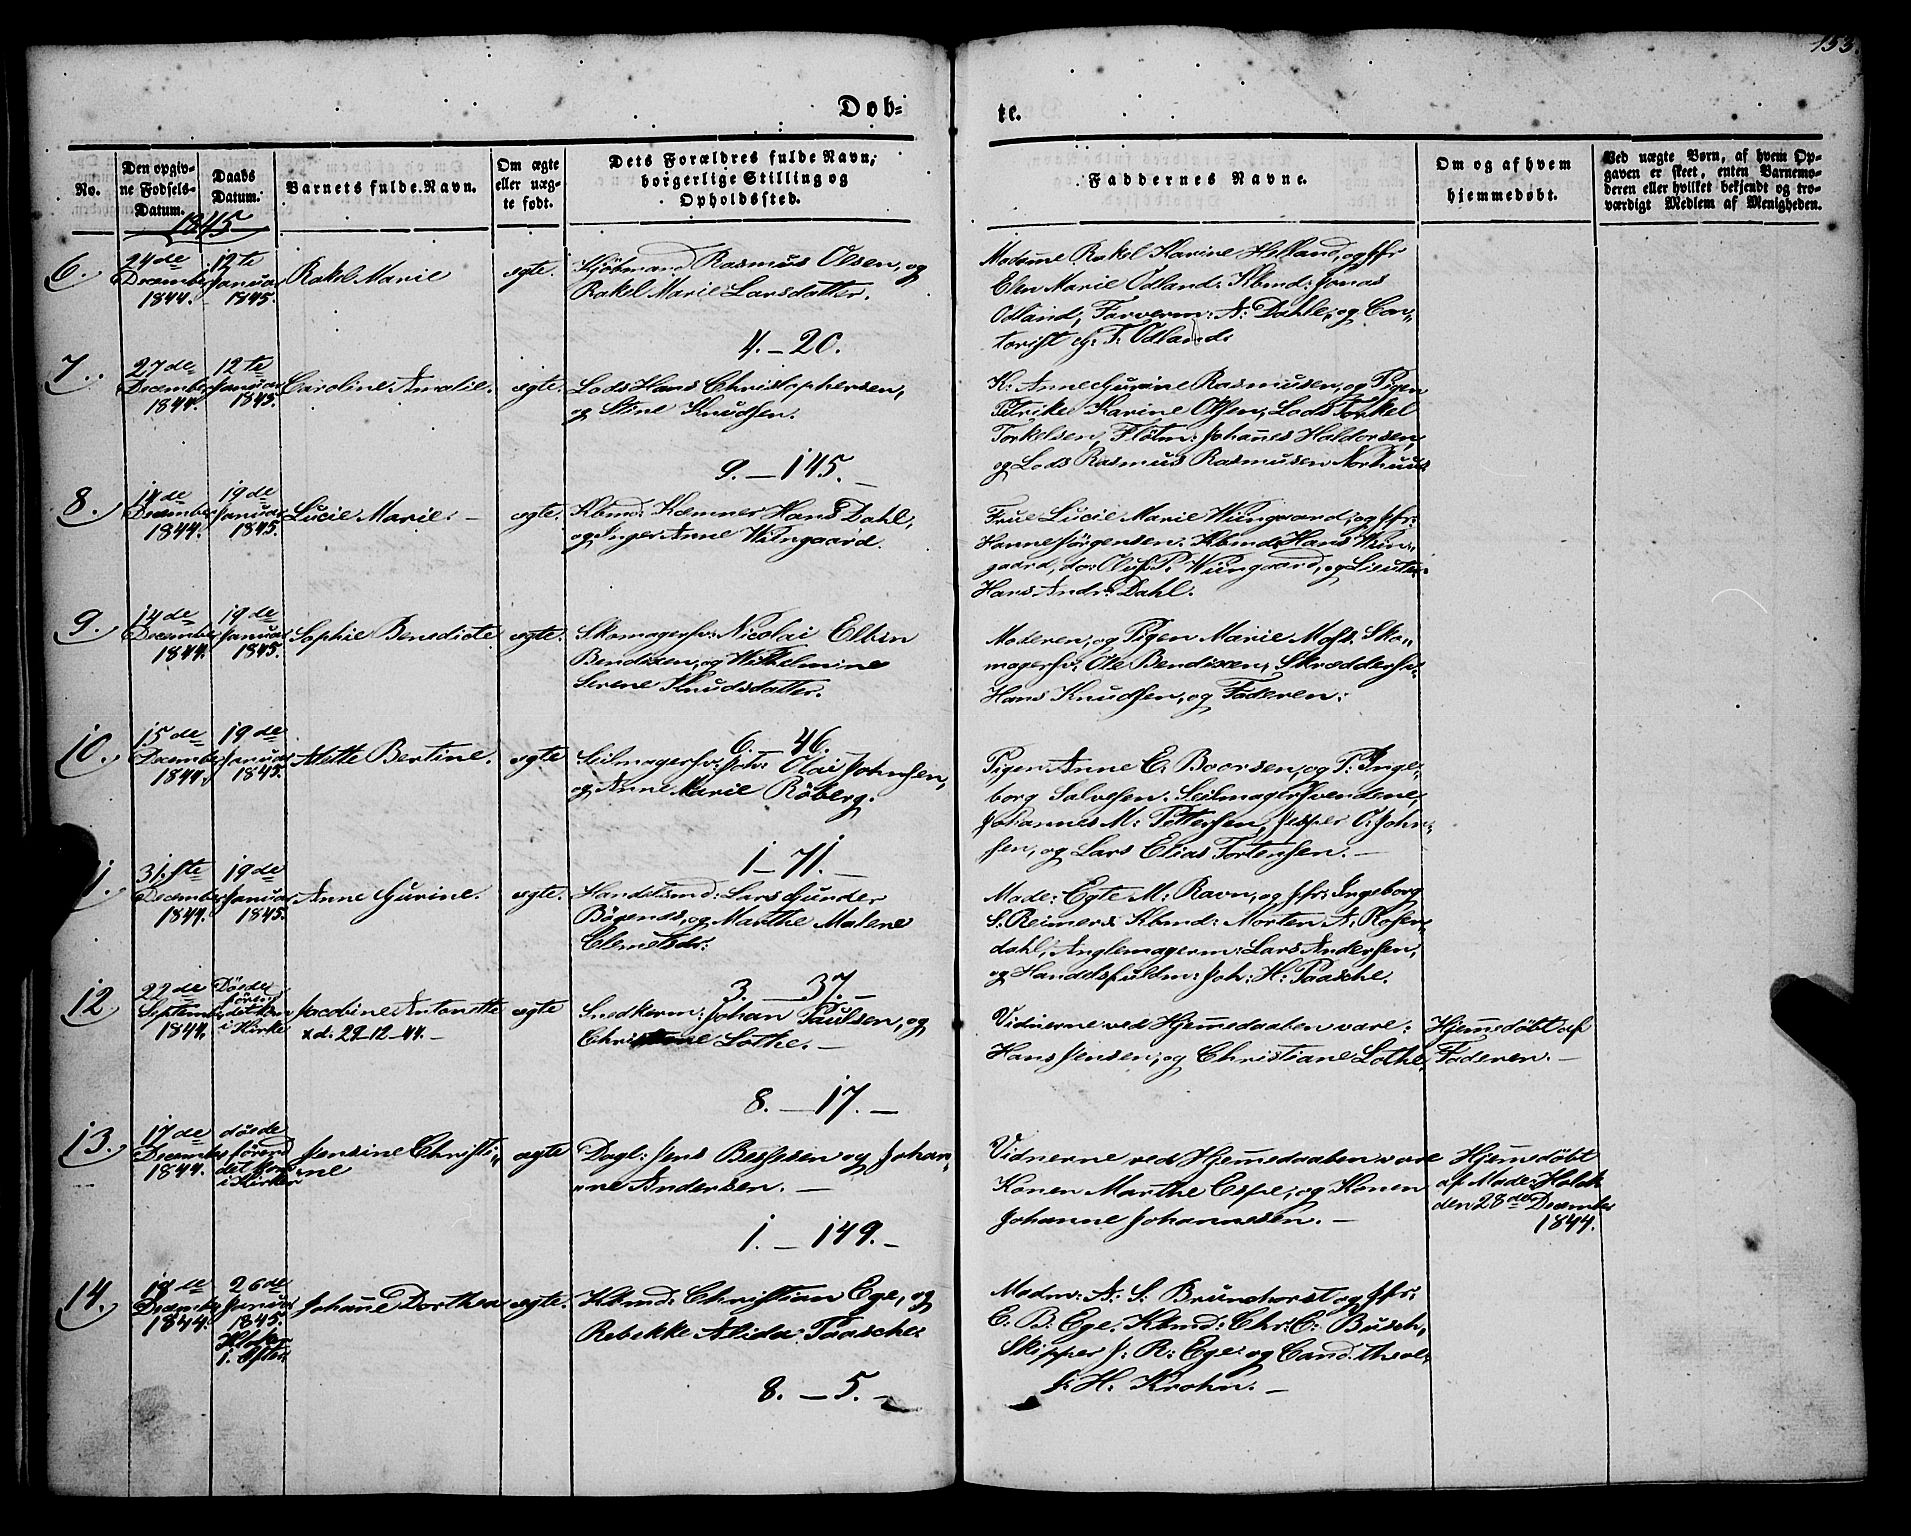 153.
Døb=
te.
No.
Den opgiv-
ne Fødsels-
Datum.
Daabs
Datum.
Barnets fulde Navn.
Om ægte
eller uæg-
te født.
Dets Forældres fulde Navn,
borgerlige Stilling og
Opholdssted.
Faddernes Navne.
Om og af hvem
hjemmedøbt.
Ved uægte Børn, af hvem Op-
gaven er skeet, enten Barnemo-
deren eller hvilket bekjendt og tro-
værdigt Medlem af Menigheden.
1845
6.
24de
December
1844.
12te
Januar
1845.
Rakel Marie
ægte.
Kjöbmand Rasmus Olsen, og
Rakel Marie Larsdatter.
4. – 20.
Madame Rakel Karine Helland, og Jfr
Elen Marie Odland. Kbmd: Jonas
Odland, Farverm: A. Dahle, og Con-
torist T. Odland.
7.
27de
December
1844.
12te
Januar
1845.
Caroline Amalie.
ægte.
Lods Hans Christophersen,
og Stine Knudsen.
9. – 145. –
K: Anne Gurine Rasmusen, og Pigen
Petrike Karine Olsen, Lods Torkel
Torkelsen, Flötm: Johannes Haldorsen,
og Lods Rasmus Rasmusen Norhuus
8.
14de
December
1844.
19de
Januar
1845.
Lucie Marie. –
ægte.
Kbmd: Kæmner Hans Dahl,
og Inger Anne Wiingaard.
Frue Lucie Marie Wiingaard, og Jfr:
Hanne Jörgensen. Kbmd: Hans Wiin-
gaard, do: Oluf P. Wiingaard, og Lieuten:
Hans Andr: Dahl.
9.
14de
December
1844.
19de
Januar
1845.
Sophie Benedicte
ægte.
Skomagersv: Nicolai Elbin
Bendixen, og Wilhelmine
Serene Knudsdatter.
6. 46.
Moderen, og Pigen Marie Moss. Sko-
magersv: Ole Bendixen, Skræddersv:
Hans Knudsen, og Faderen.
10.
15de
December
1844.
19de
Januar
1845.
Alette Bertine.
ægte
Seilmagersv: Joh: Olai Johnsen,
og Anne Marie Röberg.
1 – 71. –
Pigen Anne E. Boorsen, og P: Inge-
borg Salvesen. Seilmagersvendene,
Johannes M: Pettersen, Jesper O. John-
sen, og Lars Elias Tortensen. –
1.
31.ste
December
1844.
19de
Januar
1845.
Anne Gurine.
ægte.
Handelsmd: Lars Gunder
Börends, og Marthe Malene
Clemetsdr:
3. – 37. –
Made: Egte M: Ravn, og Jfr: Ingeborg
S. Reimers. Kbmd: Morten A. Rosen-
dahl, Anglemagerm: Lars Andersen,
og Handelsfuldm: Joh: H: Paasche.
12.
22de
Septemb:
1844.
Döede
förend
det kom
i Kirke
Jacobine Antonette
xd: 29-12-44. –
ægte
Snedkerm: Johan Paulsen, og
Christiane Lothe. –
8. – 17. –
Vidnerne ved Hjemmedaaben vare:
Hans Jensen, og Christiane Lothe.
Hjemmedöbt af
Faderen. –
13.
17de
December
1844.
döede
förend
det kom
i Kirken
Jensine Christi-
ne
ægte
Dagl: Jens Bessesen og Johan-
ne Andersen. –
1. – 149. –
Vidnerne ved Hjemmedaaben vare
Konen Marthe Espe, og Konen
Johanne Johannesen. –
Hjemmedöbt
af Made: Holck
den 28de December
1844.
14.
18de
December
1844.
26de
Januar
1845.
Johanne Dorthea
ægte.
Kbmd: Christian Ege, og
Rebekke Alida Paasche.
8. – 5. –
Madm: A. S. Brunchorst og Jfr:
C. B. Ege. Kbmd: Chr: C. Busch,
Skipper J. R. Ege og Cand: theol:
J. H. Krohn. –